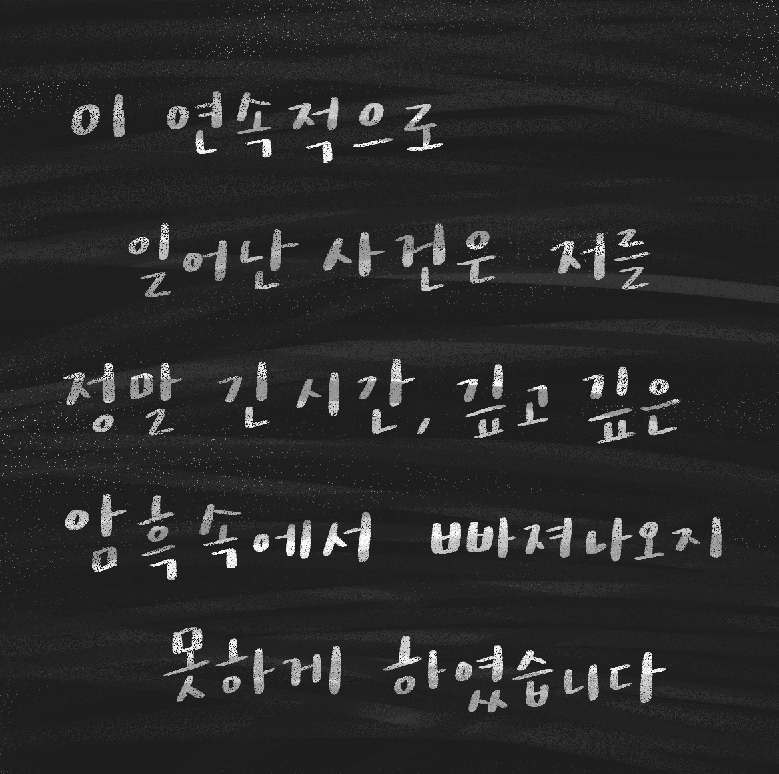 이 연속적으로
일어난 사건은 저를
정말 긴 시간, 깊고 깊은
암흑 속에서 빠져나오지
못하게 하였습니다